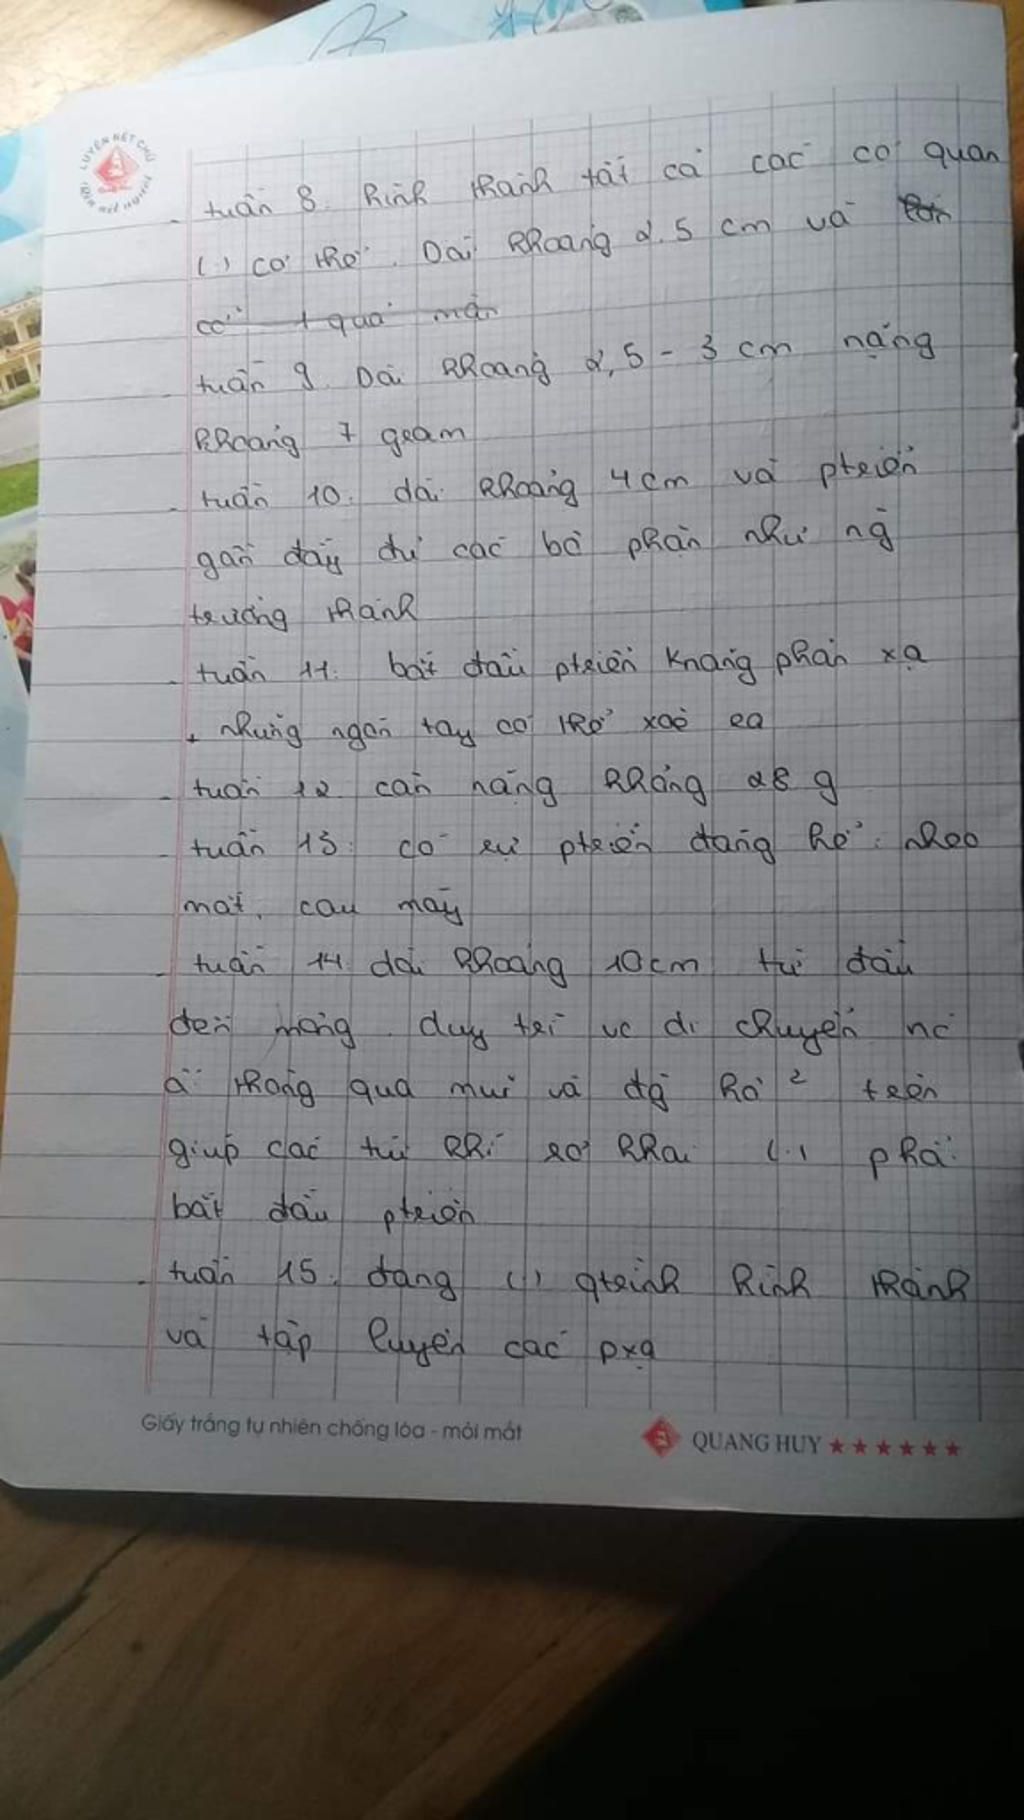 LUYỆN NÉT CHỮ
Rèn nết người
- tuần 8. hình thành tất cả các cơ quan
(.) cơ thể. Dài khoảng 2.5 cm và
cỡ 1 quả mận
- tuần 9. Dài khoảng 2,5 - 3 cm nặng
khoảng 7 gram
- tuần 10: dài khoảng 4 cm và ptriển
gần đầy đủ các bộ phận như ng
trưởng thành
- tuần 11: bắt đầu ptriển knăng phản xạ
+ những ngón tay có thể xoè ra
- tuần 12 cân nặng khoảng 28 g
- tuần 13: có sự ptriển đáng kể: nheo
mắt, cau mày
- tuần 14: dài khoảng 10 cm từ đầu
đến mông. duy trì vc di chuyển nc
ối thông qua mũi và đg hô 2 trên
giúp các túi khí sơ khai (.) phổi
bắt đầu ptriển
- tuần 15: đang (.) qtrình hình thành
và tập luyện các pxạ
Giấy trắng tự nhiên chống lóa - mỏi mắt
QUANG HUY ★★★★★★